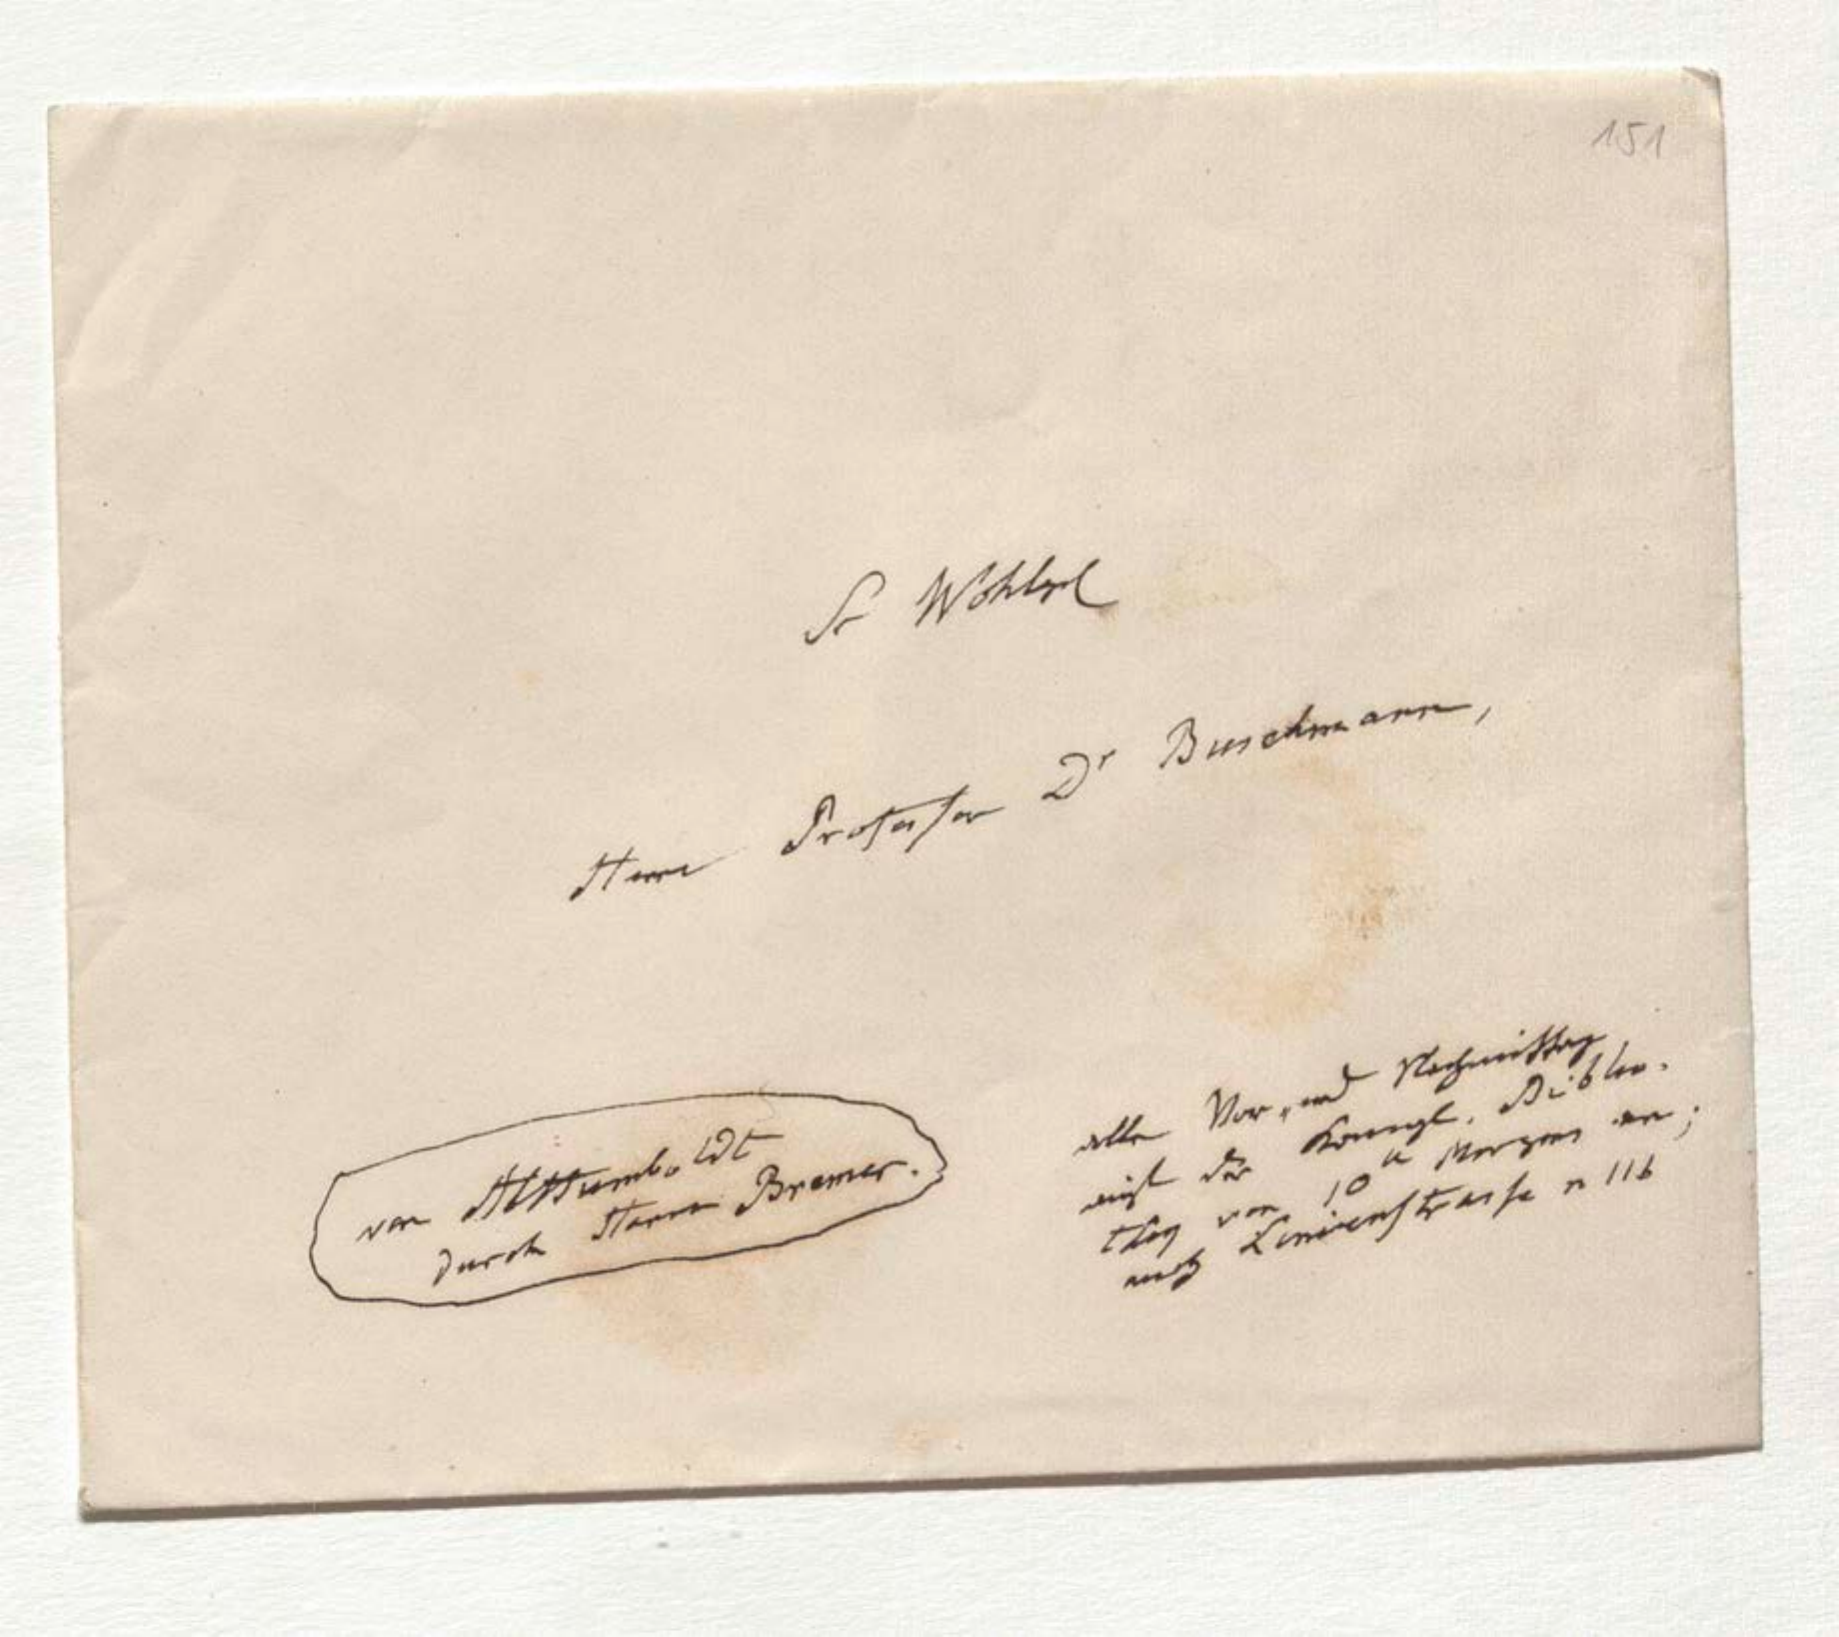 151
Sr Wohlgb
Herrn Professor Dr Buschmann,
von AlHumboldt
durch Herrn Bremer.
alle Vor und Nachmittag
auf der Königl. Biblio-
thek von 10 u Morgens an;
auch Linienstrasse n 116